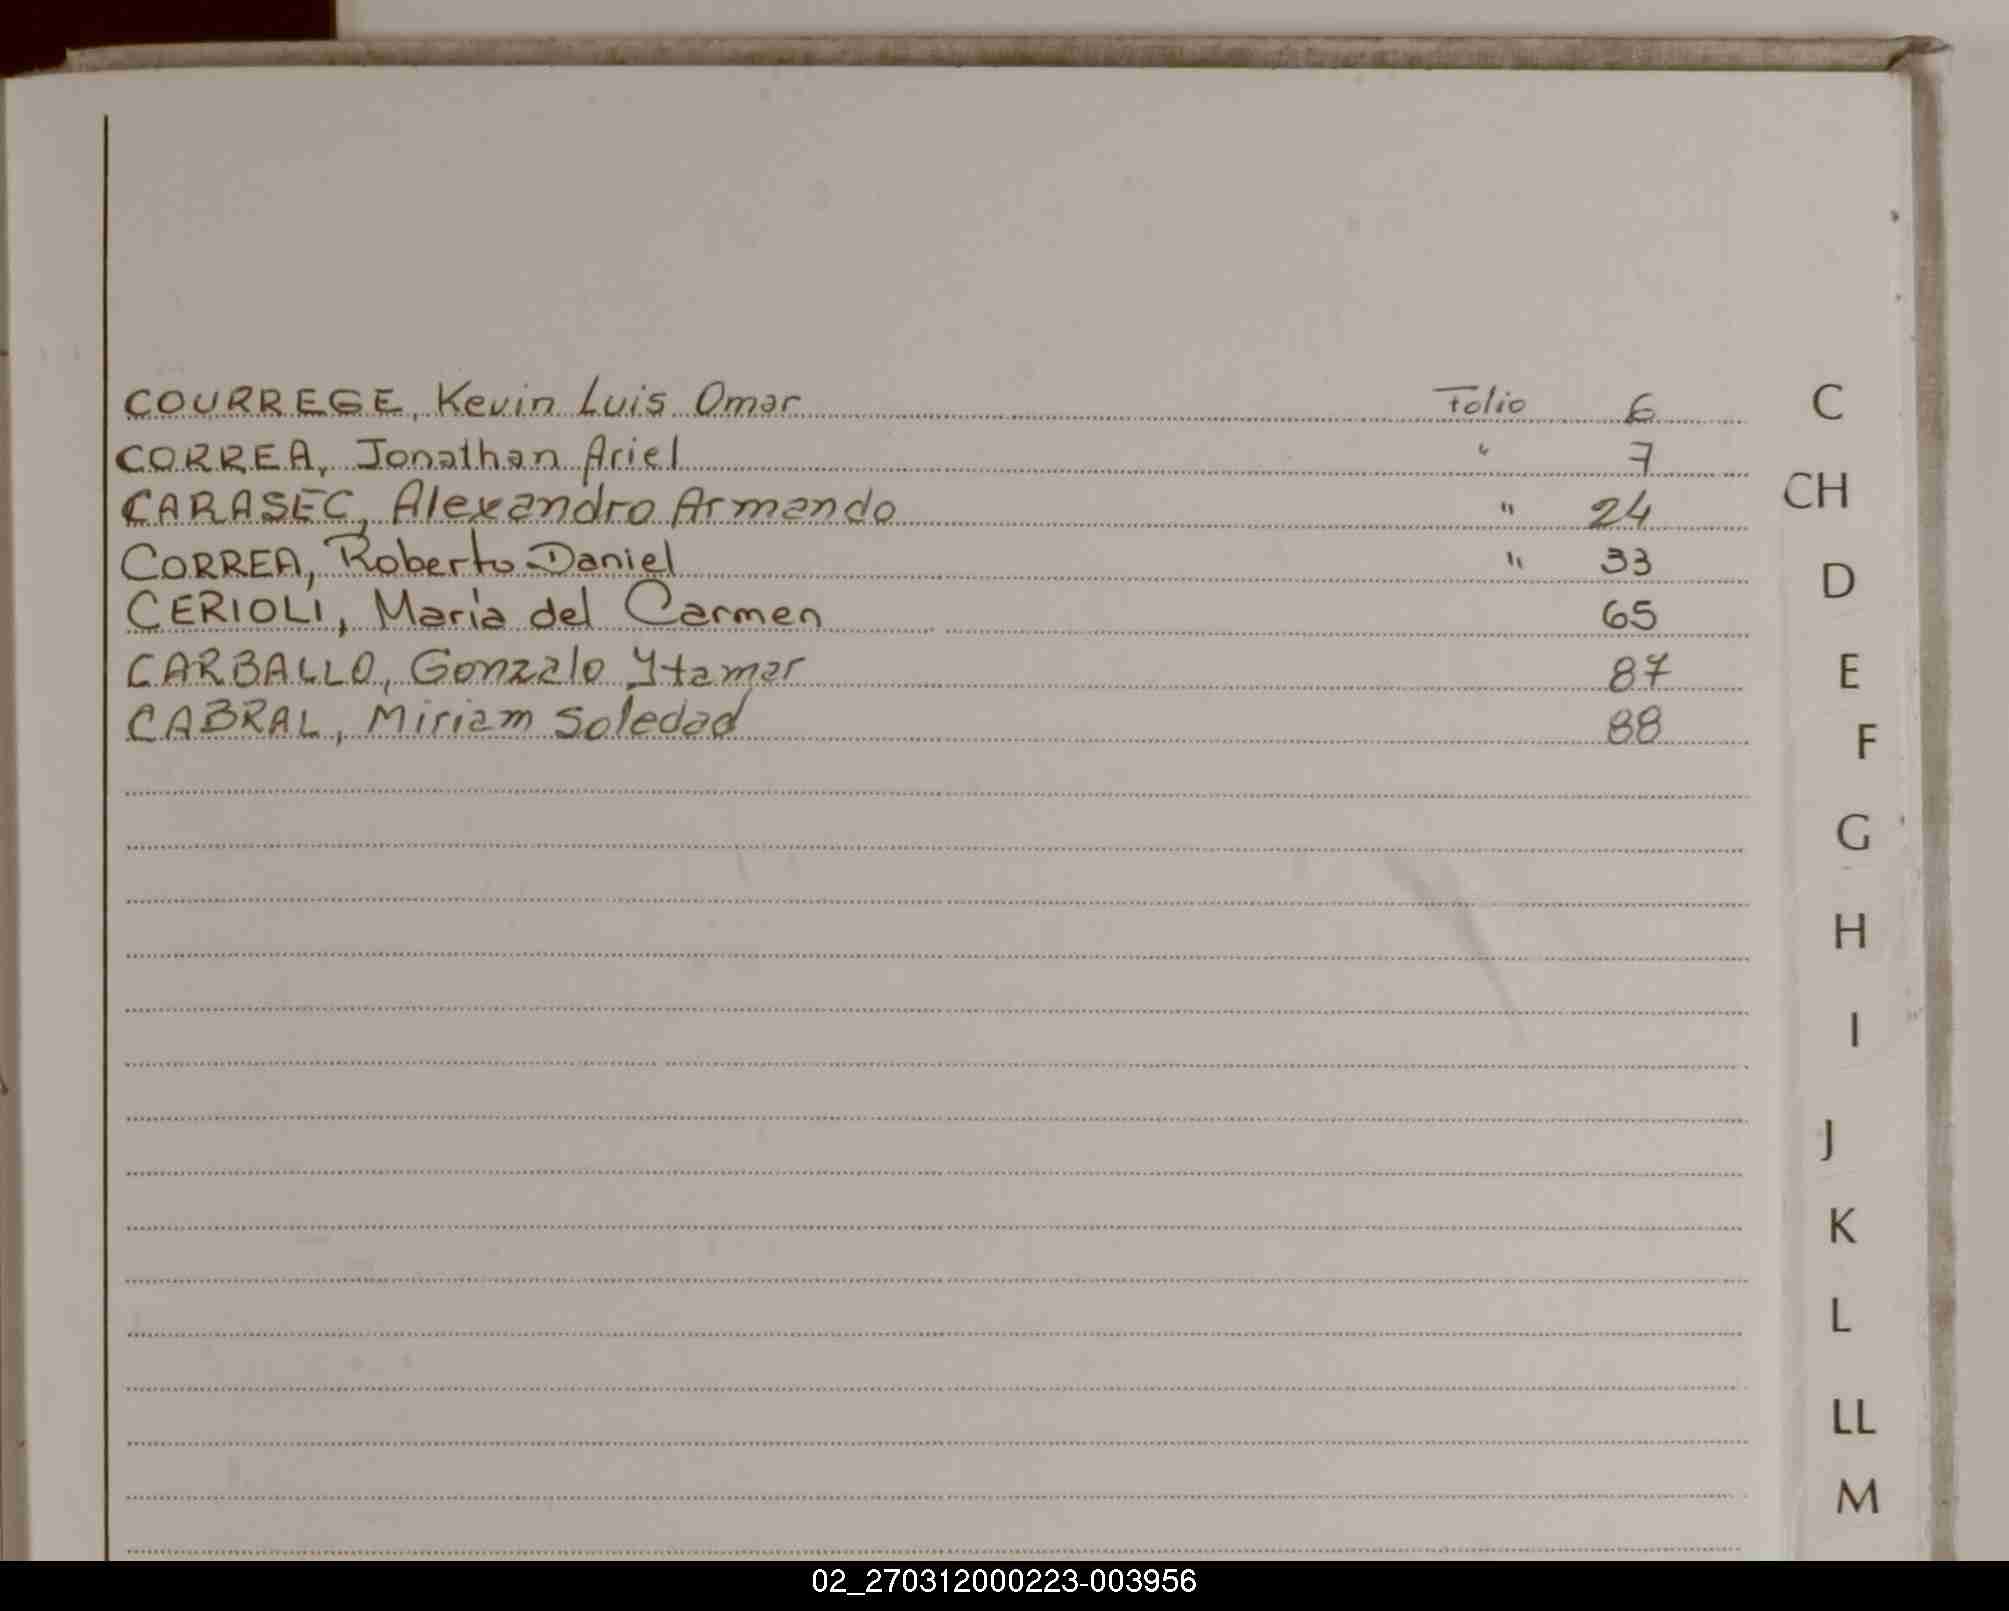 COURREGE, Kevin Luis Omar Folio 6 C
CORREA, Jonathan Ariel " 7
CARASEC, Alexandro Armando " 24 CH
CORREA, Roberto Daniel " 33 D
CERIOLI, María del Carmen 65
CARBALLO, Gonzalo Ytamar 87 E
CABRAL, Miriam Soledad 88 F
G
H
I
J
K
L
LL
M
02_270312000223-003956